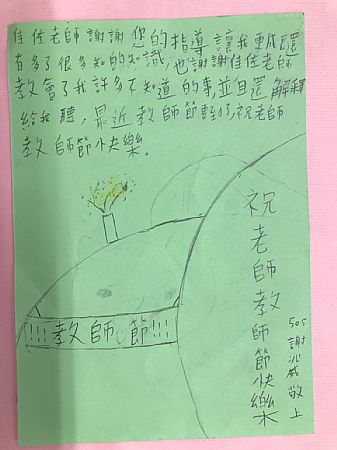 佳佐老師謝謝您的指導讓我更成還
有多了很多知的知識,也謝謝佳佐老師
教會了我許多不知道的事並且還解釋
給我聽,最近教師節到了,祝老師
教師節快樂。
!!!教師節!!!
祝老師教師節快樂
505謝兆威敬上